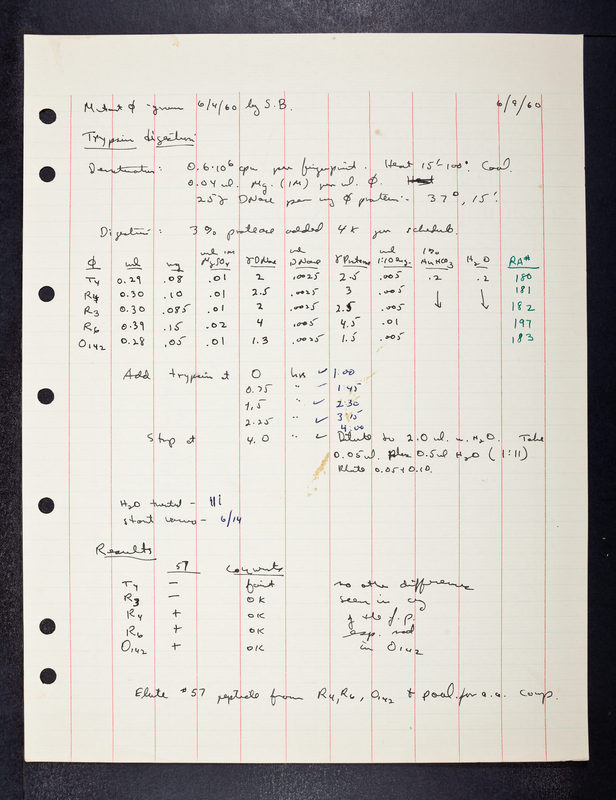 Mutant φ grown 6/4/60 by S.B. 6/9/60
Trypsin digestion:
Denaturation: 0.6·10⁶ cpm per fingerprint. Heat 15' 100°. Cool.
0.04 ml. Mg. (1M) per ml. φ.
25γ DNase per mg φ protein. 37°, 15'.
Digestion: 3% protease added 4x per schedule
φ ml mg ml 1M MgSO4 γ DNase ml DNase γ Protease ml 1:10 1% H2O RA#
T4 0.29 .08 .01 2 .0025 2.5 .005 .2 .2 180
R4 0.30 .10 .01 2.5 .0025 3 .005 ↓ ↓ 181
R3 0.30 .085 .01 2 .0025 2.5 .005 182
R6 0.39 .15 .02 4 .005 4.5 .01 197
O142 0.28 .05 .01 1.3 .0025 1.5 .005 183
Add trypsin at 0 hrs ✓ 1:00
0.75 " ✓ 1:45
1.5 " ✓ 2:30
2.25 " ✓ 3:15
4:00
Stop at 4.0 " ✓ Dilute to 2.0 ml. H2O. Take
0.05 ml. plus 0.5 ml H2O (1:11)
Plate 0.05 + 0.10.
H2O treated -
start - 6/14
Results
57 Comments
T4 - faint no other difference
R3 - OK seen in any
R4 + OK of the f.p.
R6 + OK
O142 + OK in O142
Elute #57 peptide from R4, R6, O142 + pool for a.a. comp.